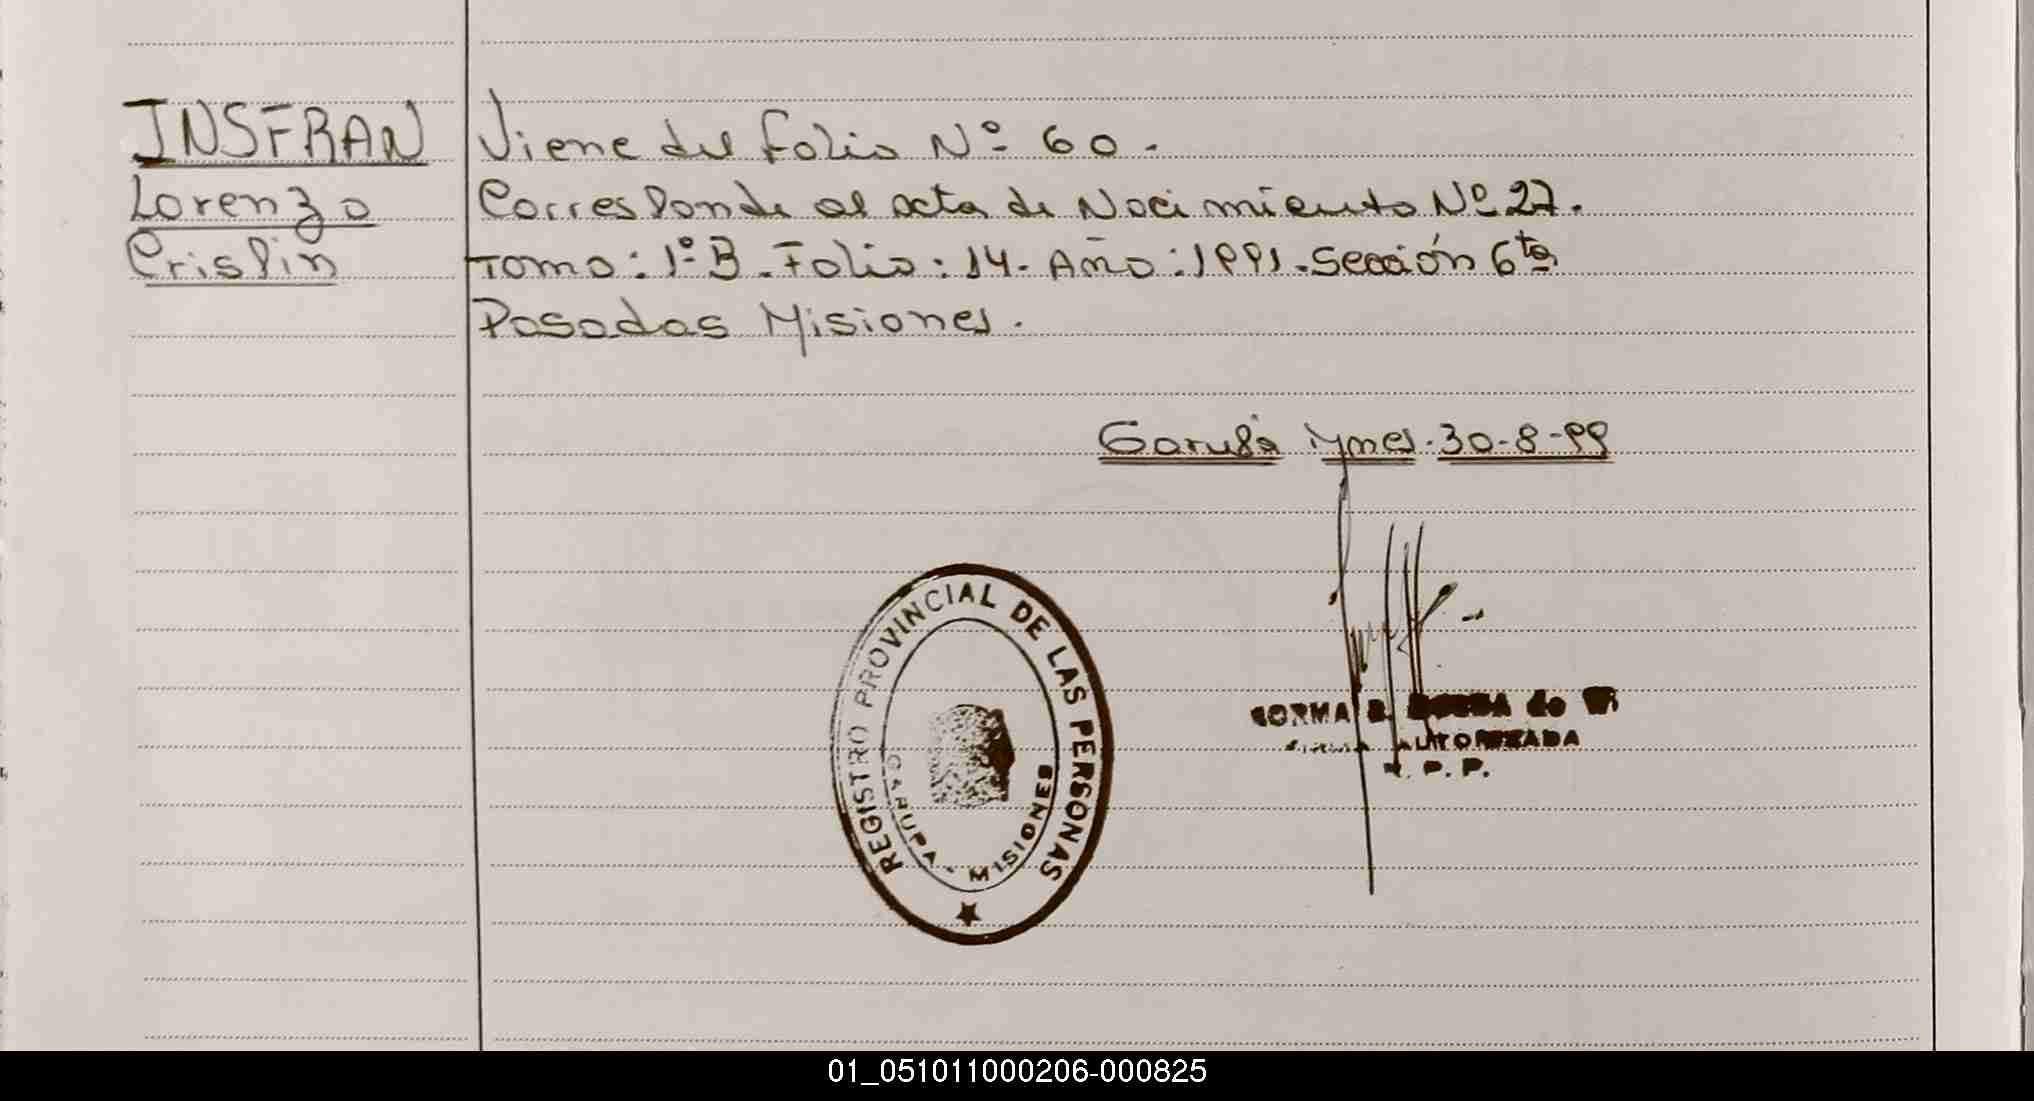 INSFRAN
Lorenzo
Crispin
Viene del folio Nº 60.
Corresponde al acta de Nacimiento Nº 27.
Tomo: 1º B. Folio: 14. Año: 1991. Sección 6ta
Posadas Misiones.
Garupá Mnes. 30-8-99
REGISTRO PROVINCIAL DE LAS PERSONAS
GARUPA - MISIONES
NORMA B. de
AUTORIZADA
R. P. P.
01_051011000206-000825